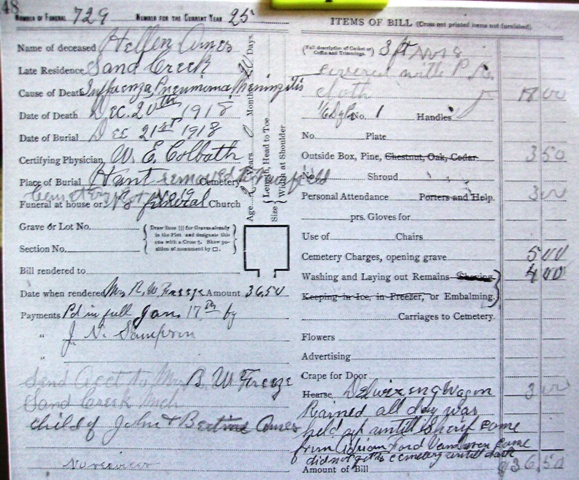 48
NUMBER OF FUNERAL 729 NUMBER FOR THE CURRENT YEAR 25
Name of deceased Hellen Ames
Late Residence Sand Creek
Cause of Death Influenza Pneumonia Meningitis
Date of Death Dec. 20th 1918
Date of Burial Dec 21st 1918
Certifying Physician W. E. Colbath
Place of Burial Hunt removed to Fairfield Cemetery
Cemetery
Funeral at house or Church
Grave or Lot No.
Section No.
Bill rendered to
Date when rendered Mrs B. W Freeze Amount 36.50
Payments Pd in full Jan 17th by
" J. N. Sampson
"
Send Acct to Mrs B. W Freeze
Sand Creek Mich
child of John & Ames
No
Age Years Months Days
Size Length, Head to Toe.
Width at Shoulder
ITEMS OF BILL (Cross out printed items not furnished).
(Full description of Casket or Coffin and Trimmings. 3 ft
covered with
cloth 18 00
No. 1 Handles
No. Plate
Outside Box, Pine, Chestnut, Oak, Cedar 3 50
No. Shroud
Personal Attendance Porters and Help. 3 00
prs. Gloves for
Use of Chairs
Cemetery Charges, opening grave 5 00
Washing and Laying out Remains Shaving 4 00
Keeping in Ice, in Freezer, or Embalming
Carriages to Cemetery.
Flowers
Advertising
Crape for Door
Hearse Delivering Wagon 3 00
Warned all day was
held up untill Sherif came
from Adrian Ford came
did not get to cemetery until dark
Amount of Bill $36.50